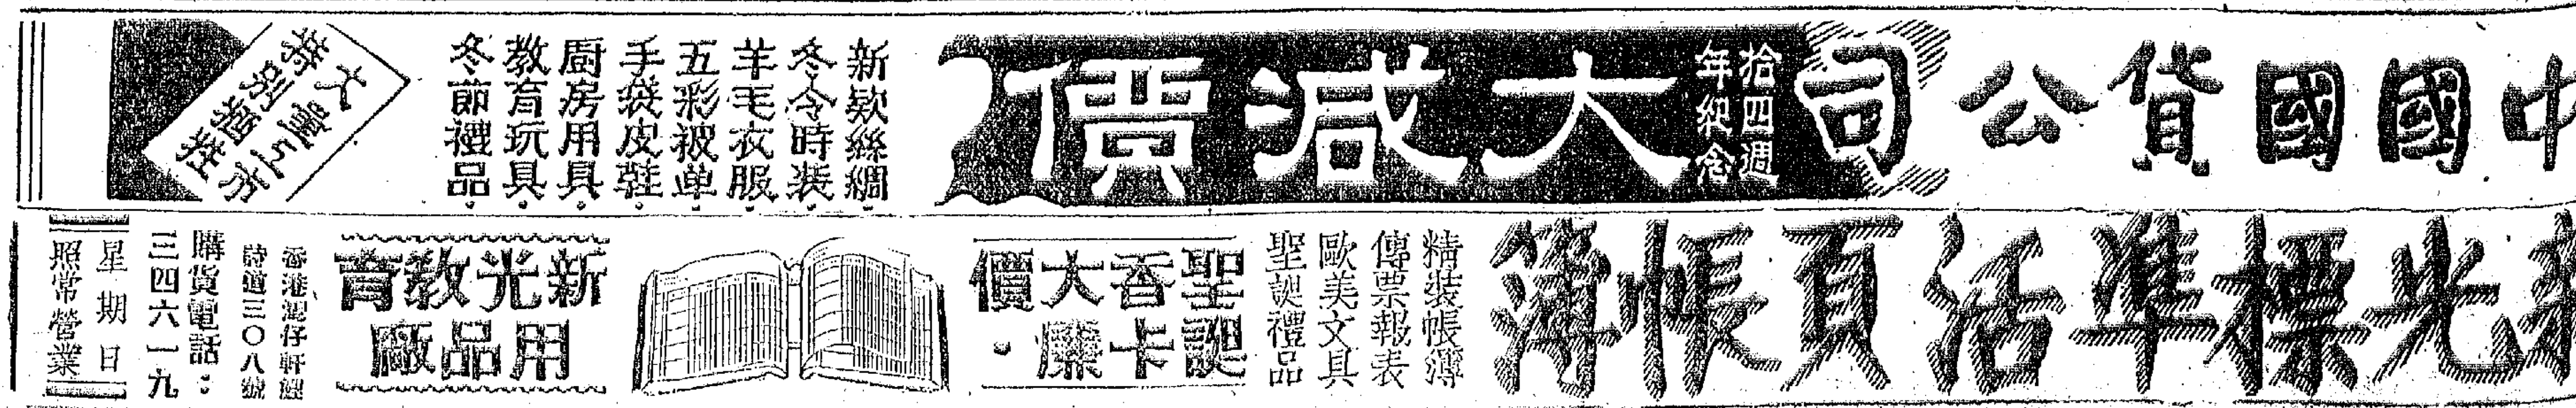 中國國貨公司
拾四週
年紀念
大減價
新欵絲綢·
冬令時裝·
羊毛衣服·
五彩被單·
手袋皮鞋·
廚房用具·
教育玩具·
冬節禮品·
光標準活頁帳簿
精裝帳簿
傳票報表
歐美文具
聖誕禮品
聖誕
香卡
大廉
價·
新光教育
用品廠
香港灣仔軒鯉
詩道三〇八號
購貨電話：
三四六一九
星期日
照常營業